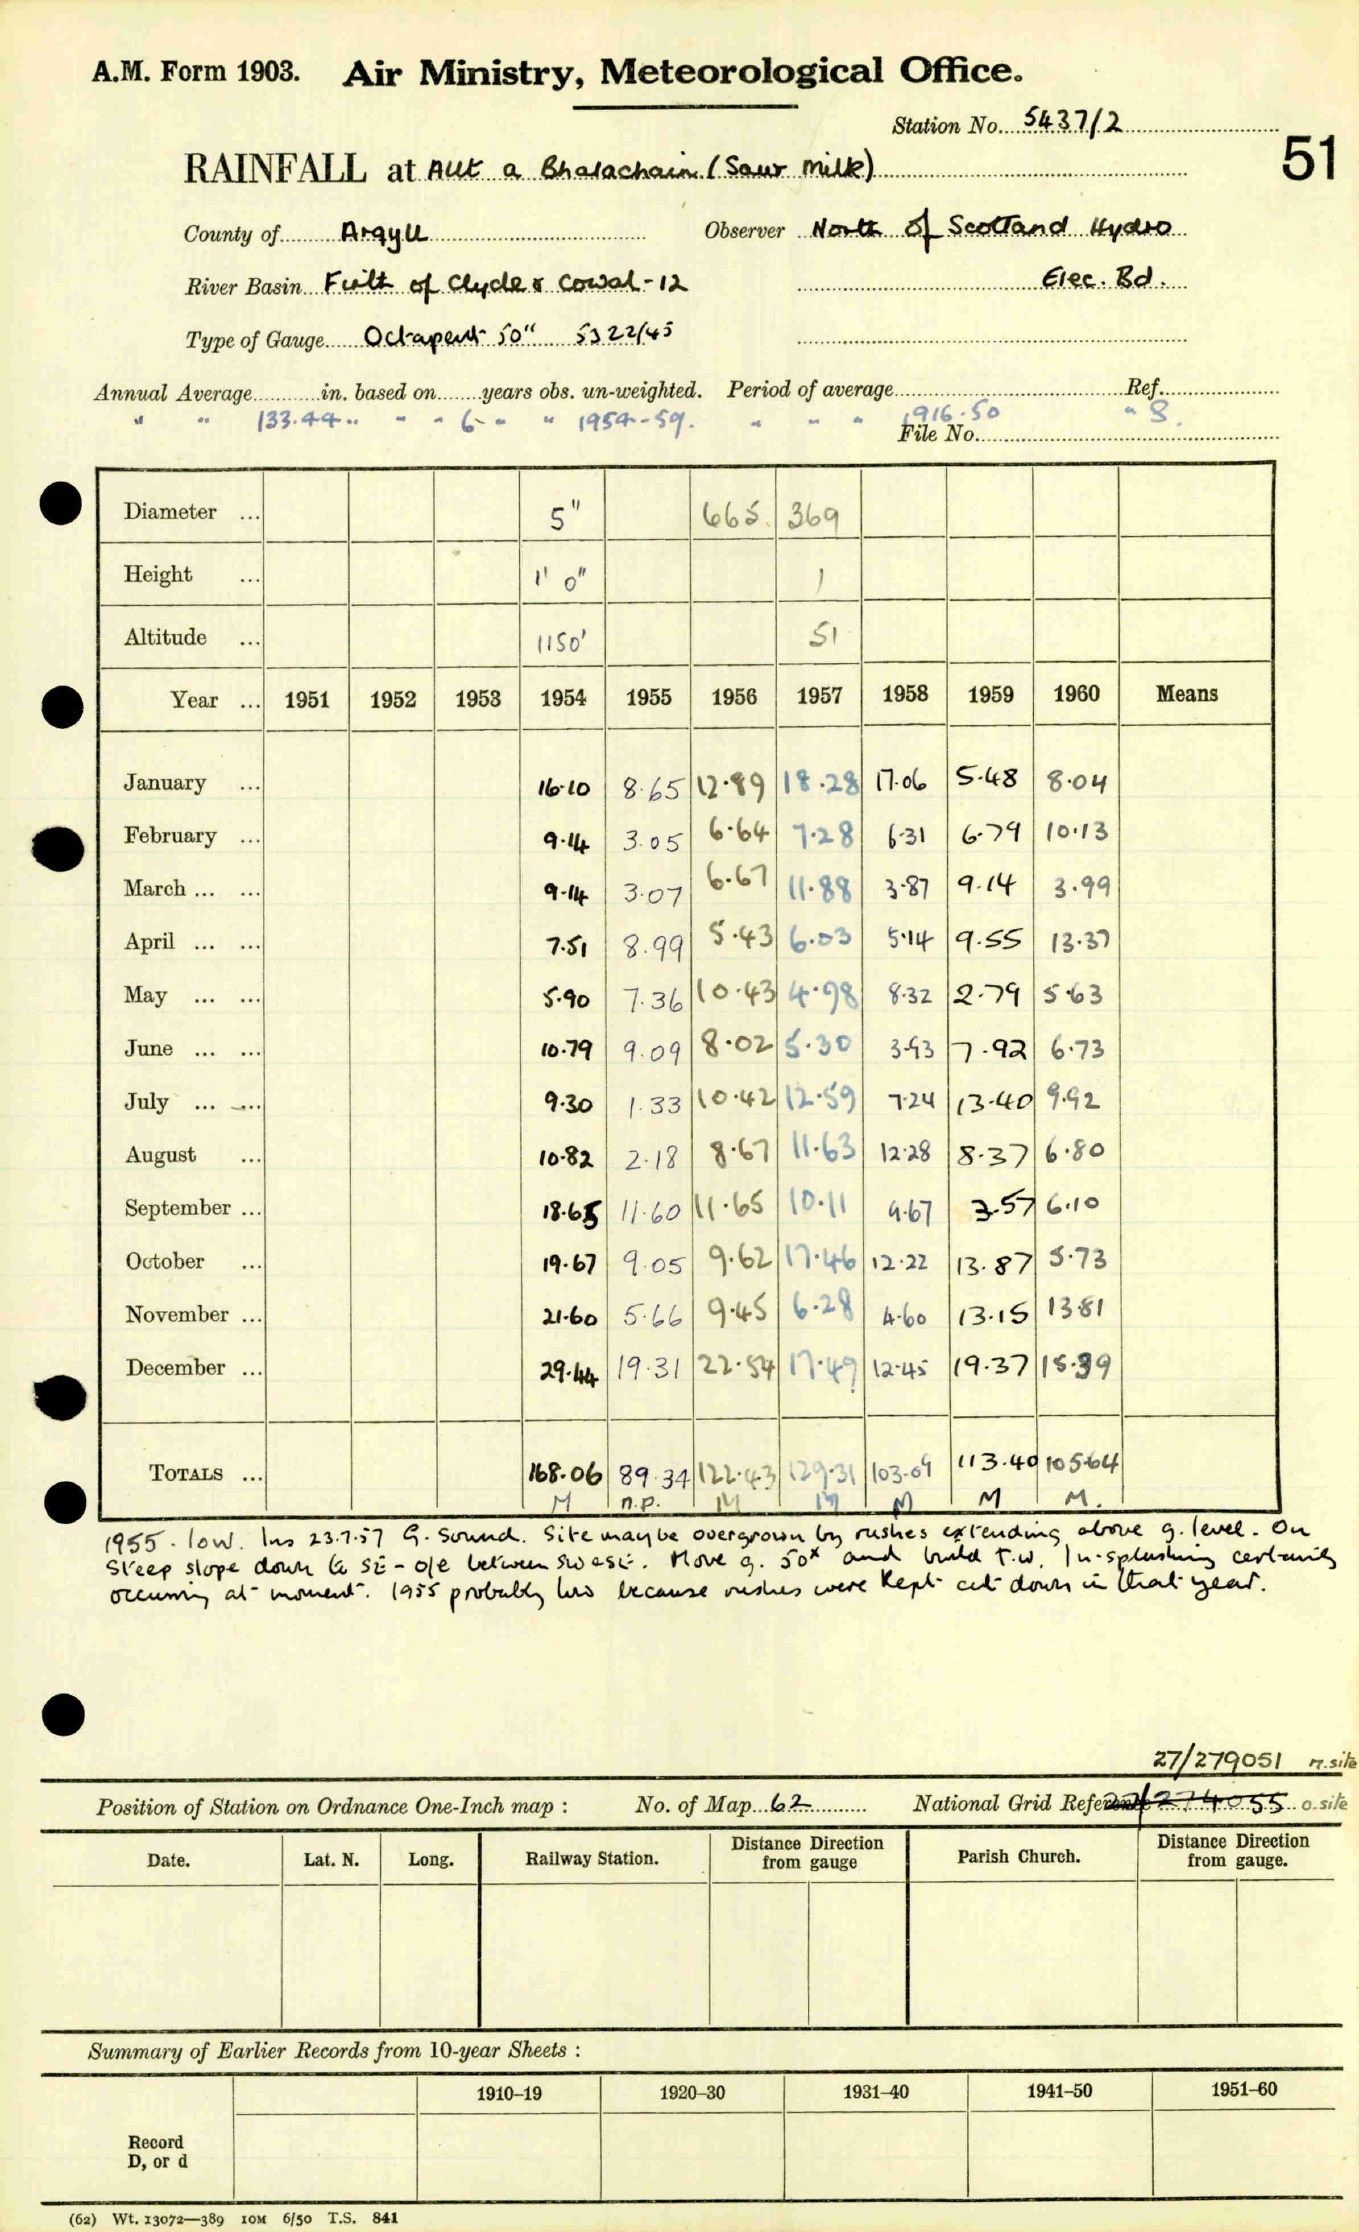 A.M. Form 1903. Air Ministry, Meteorological Office.
Station No. 5437/2
51
RAINFALL at Allt a Bhalachain (Sour Milk)
County of Argyll Observer North of Scotland Hydro
River Basin Firth of Clyde & Cowal - 12 Elec. Bd.
Type of Gauge Octapent 50" 5322/45
Annual Average in. based on years obs. un-weighted. Period of average Ref.
" " 133.44 " " " 6 " " 1954-59. " " " 1916-50 " S.
File No.
Diameter ... 5" 665. 369
Height ... 1' 0" 1
Altitude ... 1150' 51
Year ... 1951 1952 1953 1954 1955 1956 1957 1958 1959 1960 Means
January ... 16.10 8.65 12.89 18.28 17.06 5.48 8.04
February ... 9.14 3.05 6.64 7.28 6.31 6.79 10.13
March ... ... 9.14 3.07 6.67 11.88 3.87 9.14 3.99
April ... ... 7.51 8.99 5.43 6.03 5.14 9.55 13.37
May ... ... 5.90 7.36 10.43 4.98 8.32 2.79 5.63
June ... ... 10.79 9.09 8.02 5.30 3.93 7.92 6.73
July ... ... 9.30 1.33 10.42 12.59 7.24 13.40 9.92
August ... 10.82 2.18 8.67 11.63 12.28 8.37 6.80
September ... 18.65 11.60 11.65 10.11 9.67 3.57 6.10
October ... 19.67 9.05 9.62 17.46 12.22 13.87 5.73
November ... 21.60 5.66 9.45 6.28 4.60 13.15 13.81
December ... 29.44 19.31 22.54 17.49 12.45 19.37 15.39
TOTALS ... 168.06 89.34 122.43 129.31 103.09 113.40 105.64
M n.p. M M M M M.
1955 - low. Ins 23.7.57 G. Sound. Site may be overgrown by rushes extending above g. level. On
steep slope down to SE - o/e between SW & SE. Move g. 50x and build T.W. In-splashing certainly
occurring at moment. 1955 probably low because rushes were kept cut down in that year.
27/279051 n. site
Position of Station on Ordnance One-Inch map : No. of Map 62 National Grid Reference 27/274055 o. site
Date. Lat. N. Long. Railway Station. Distance Direction from gauge Parish Church. Distance Direction from gauge.
Summary of Earlier Records from 10-year Sheets :
1910–19 1920–30 1931–40 1941–50 1951–60
Record
D, or d
(62) Wt. 13072—389 10M 6/50 T.S. 841